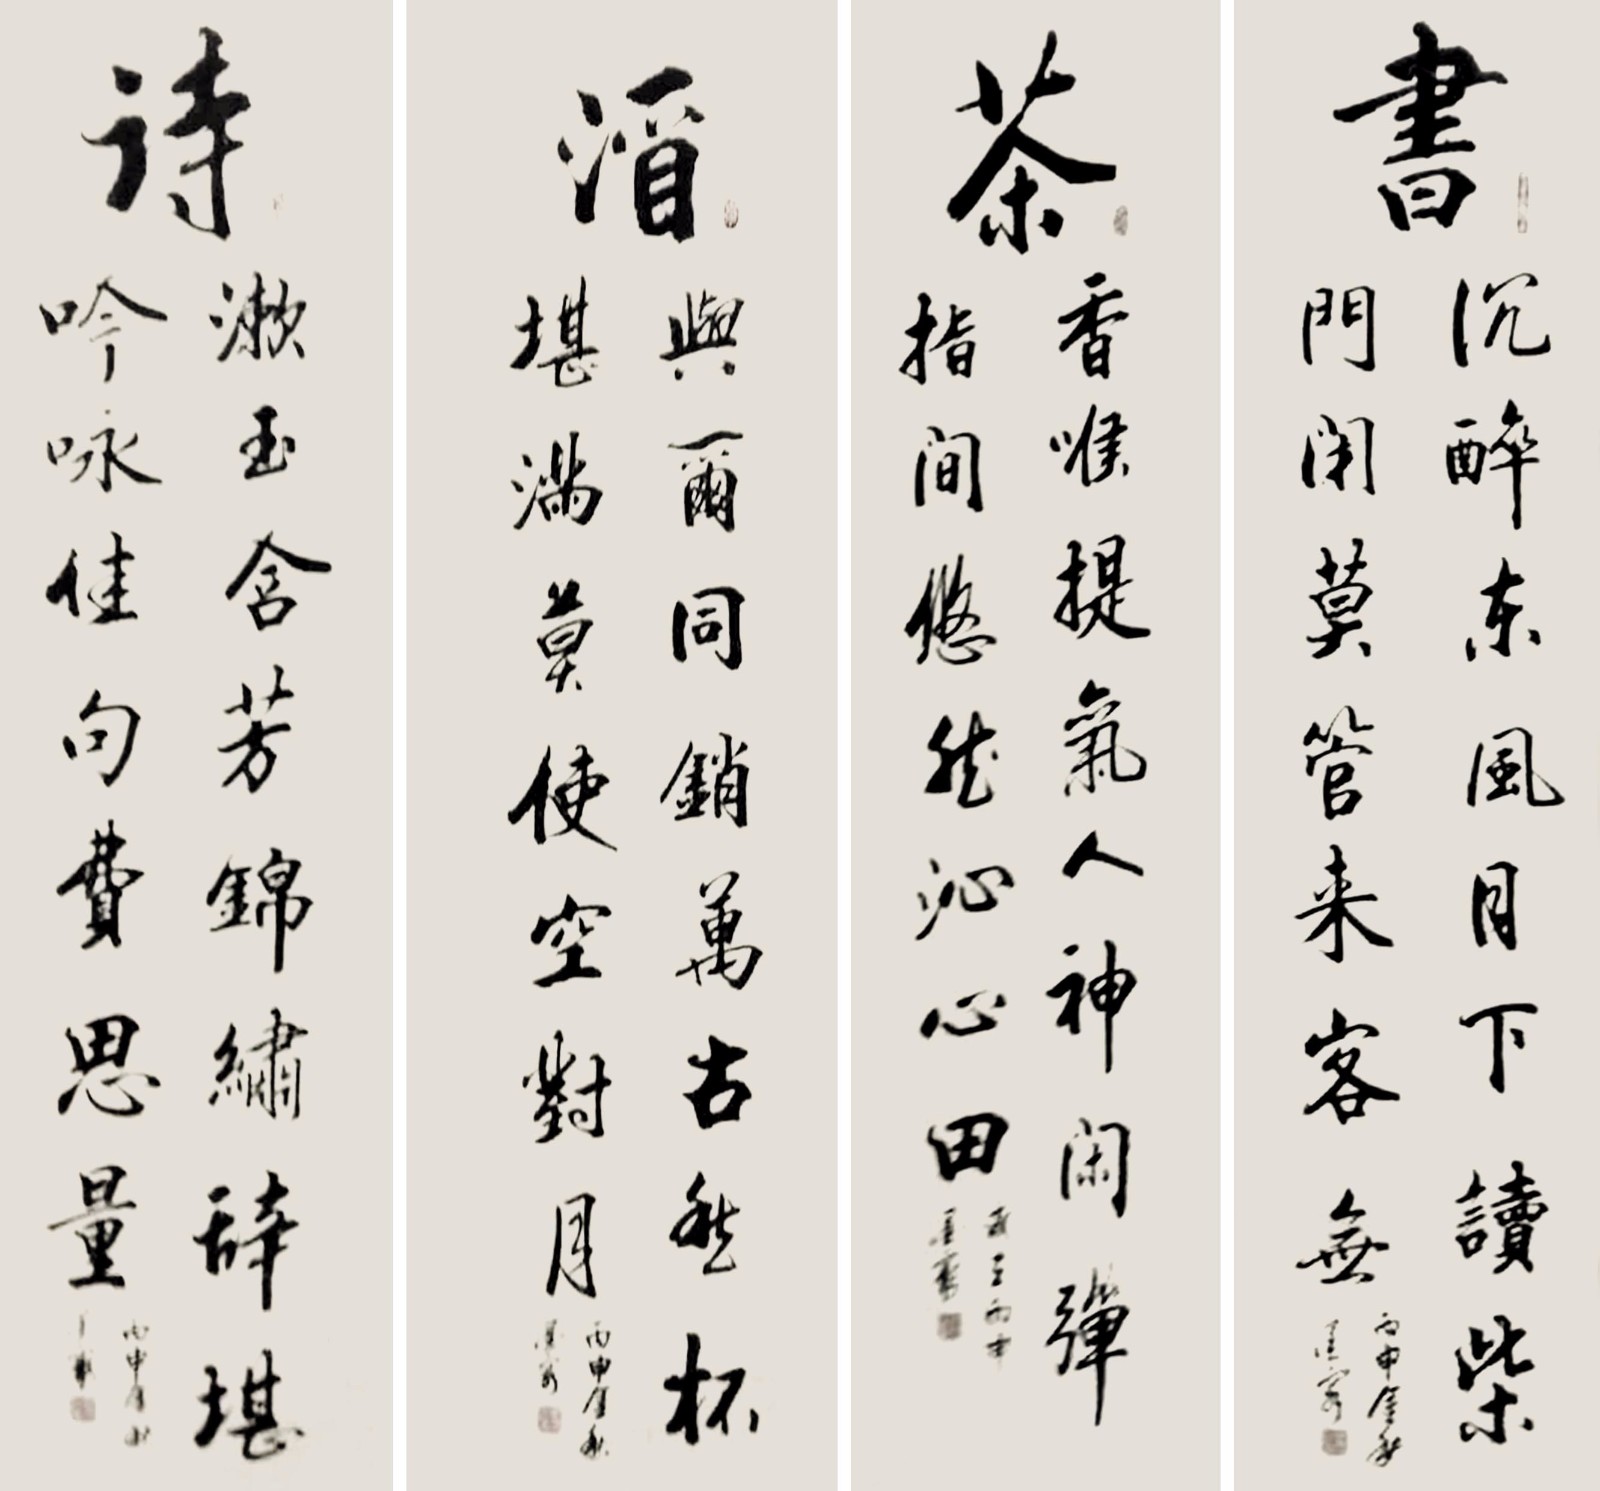 書
沉醉东風月下讀柴
門闭莫管来客無
丙申金秋
茶
香喉提氣人神闲彈
指间悠然沁心田
丙申
酒
與爾同銷萬古愁杯
堪满莫使空對月
丙申金秋
诗
漱玉含芳錦繡辞堪
吟咏佳句費思量
丙申金秋